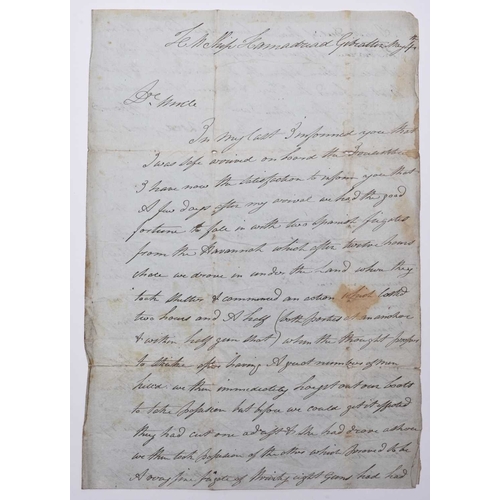 H M Ship Hamadryad Gibralter May 4th
Dr Uncle
In my last I informed you that
I was safe arrived on board the
I have now the Satisfaction to inform you that
A few days after my arrival we had the good
fortune to fall in with two Spanish frigates
from the Havannah which after twelve hours
chace we drove in under the Land when they
took shelter & commenced an action which lasted
two hours and A half (both parties at an anchor
& within half gun shot) when the thought proper
to strike after having A great number of men
killed we then immediately hoisted out our boats
to take Possession but before we could get it effected
they had cut one adrift & She had drove ashore
we then took possession of the other which proved to be
A very fine frigate of thirty eight Guns had had